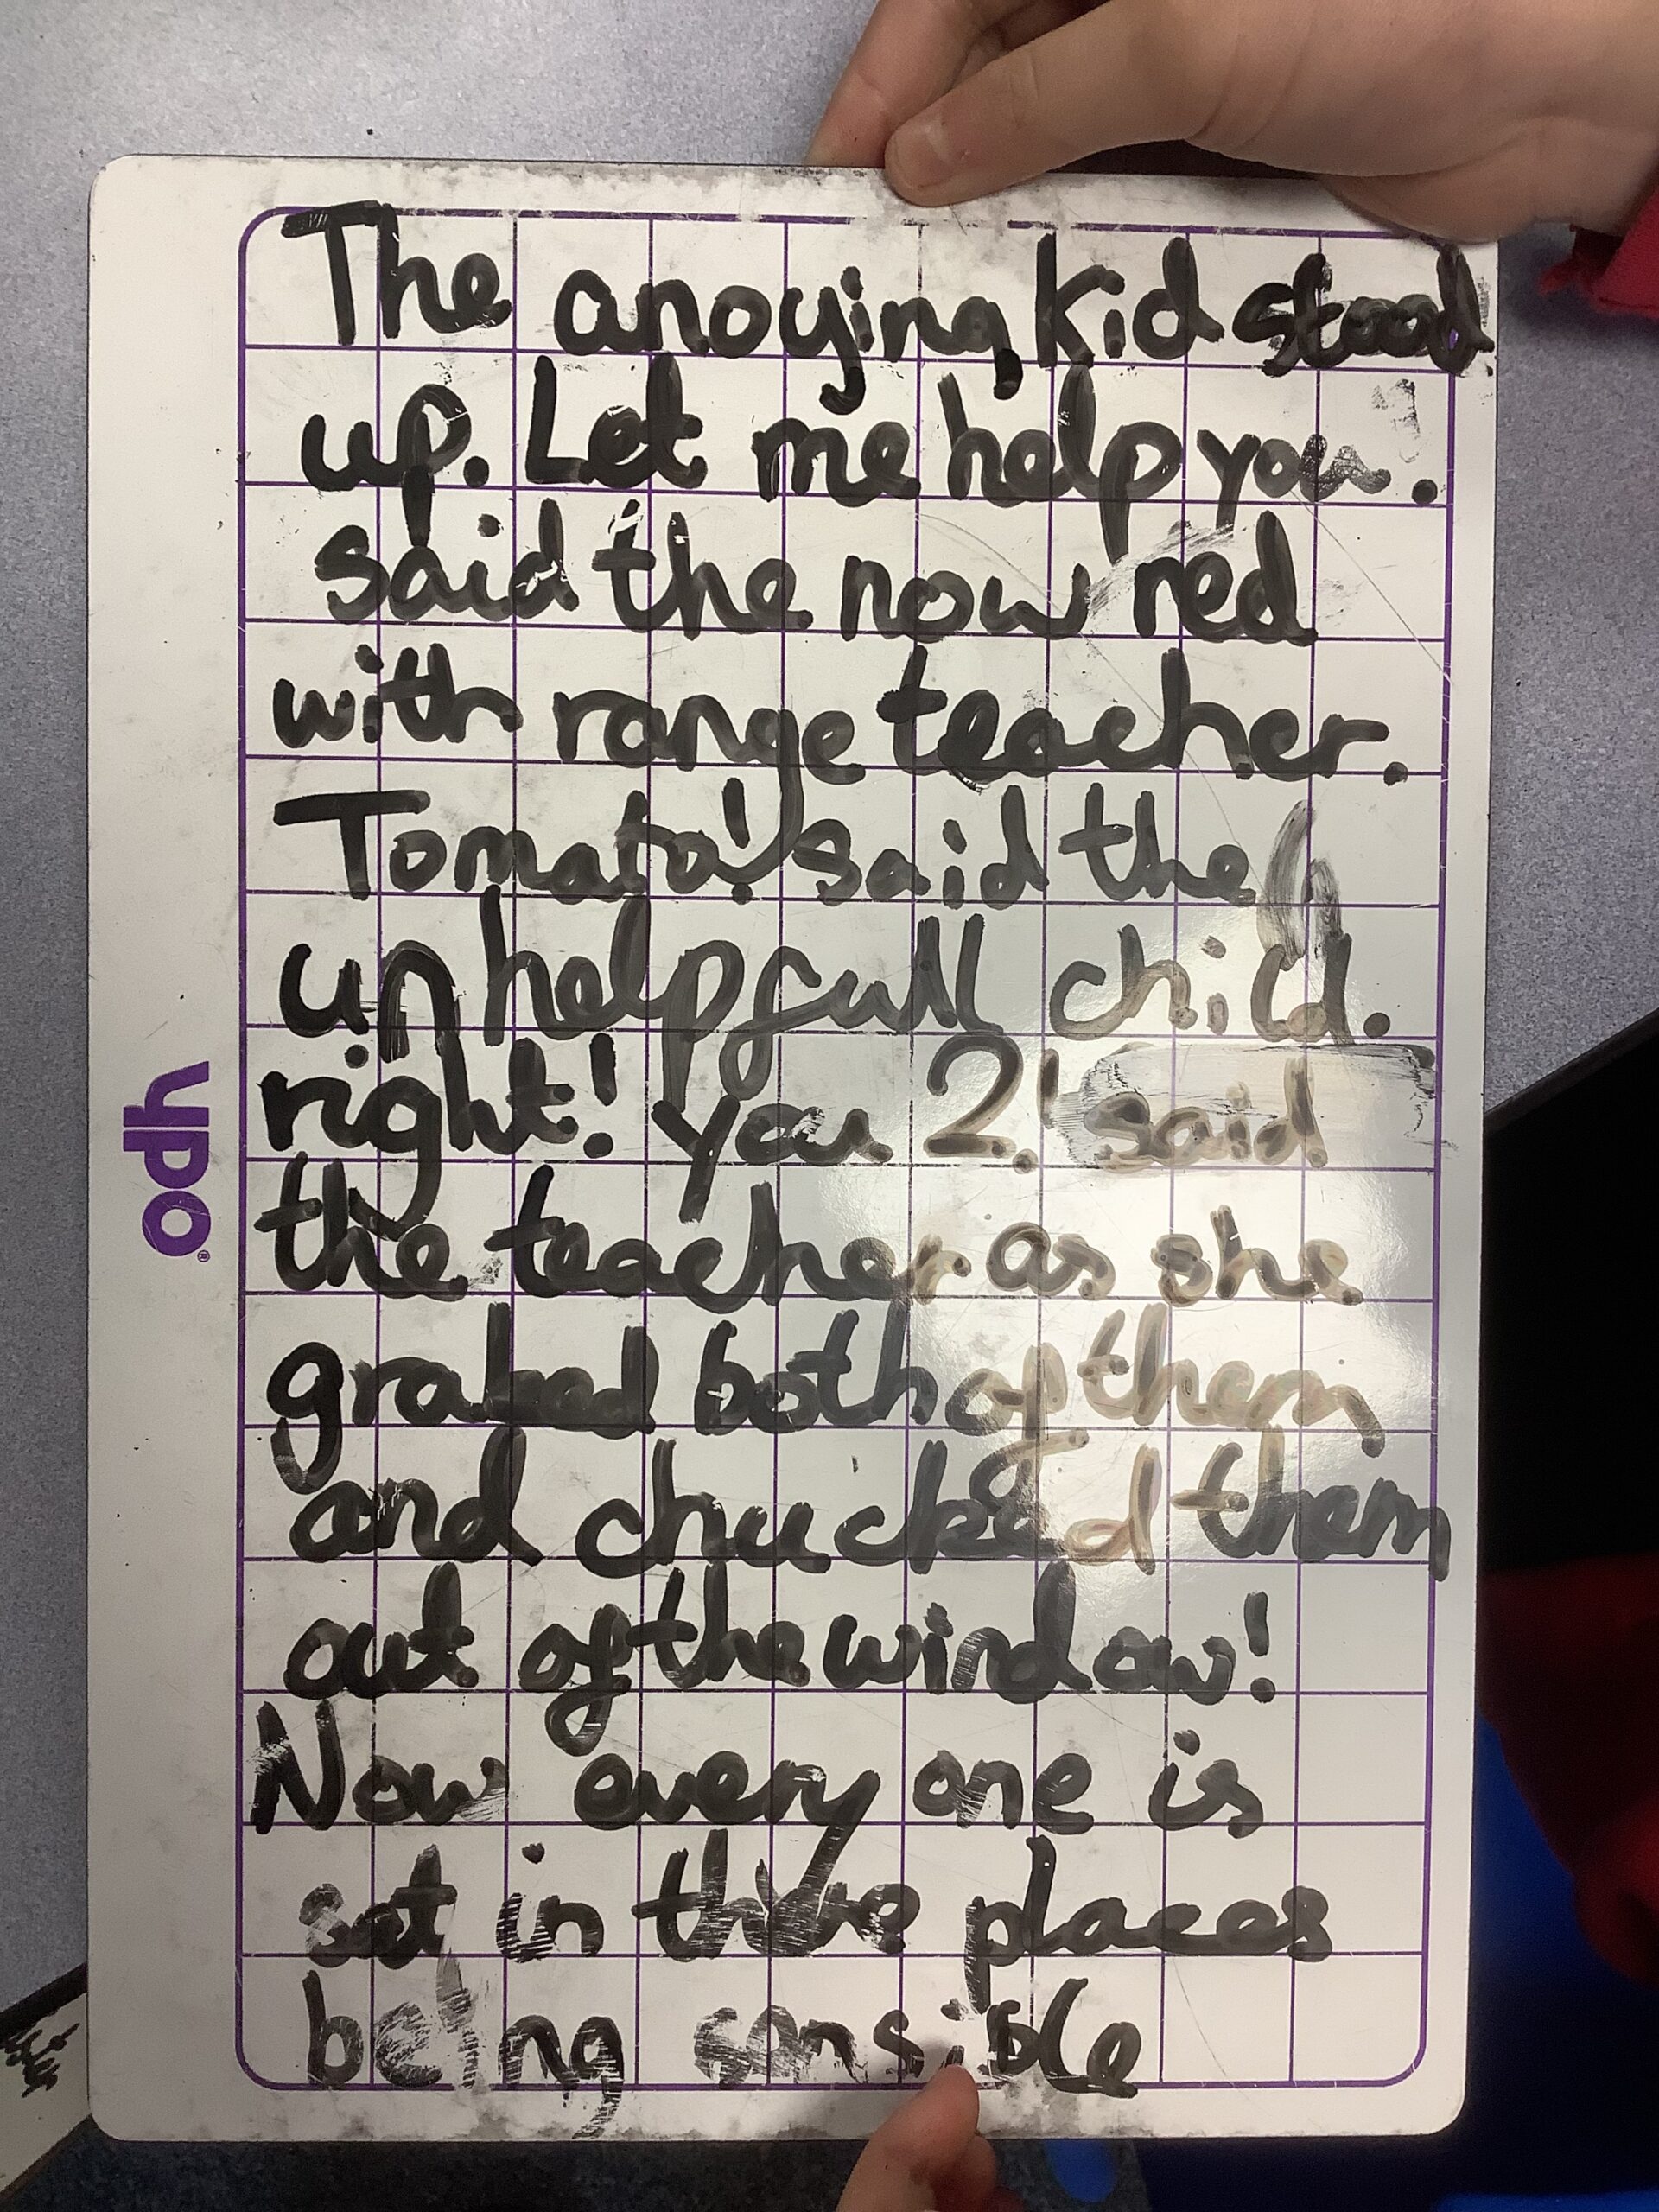 The anoying kid stood
up. Let me help you.
said the now red
with range teacher.
Tomato! said the
unhelpfull child.
right! you 2! said
the teacher as she
grabed both of them
and chucked them
out of the window!
Now every one is
sat in places
being sensible
ypo